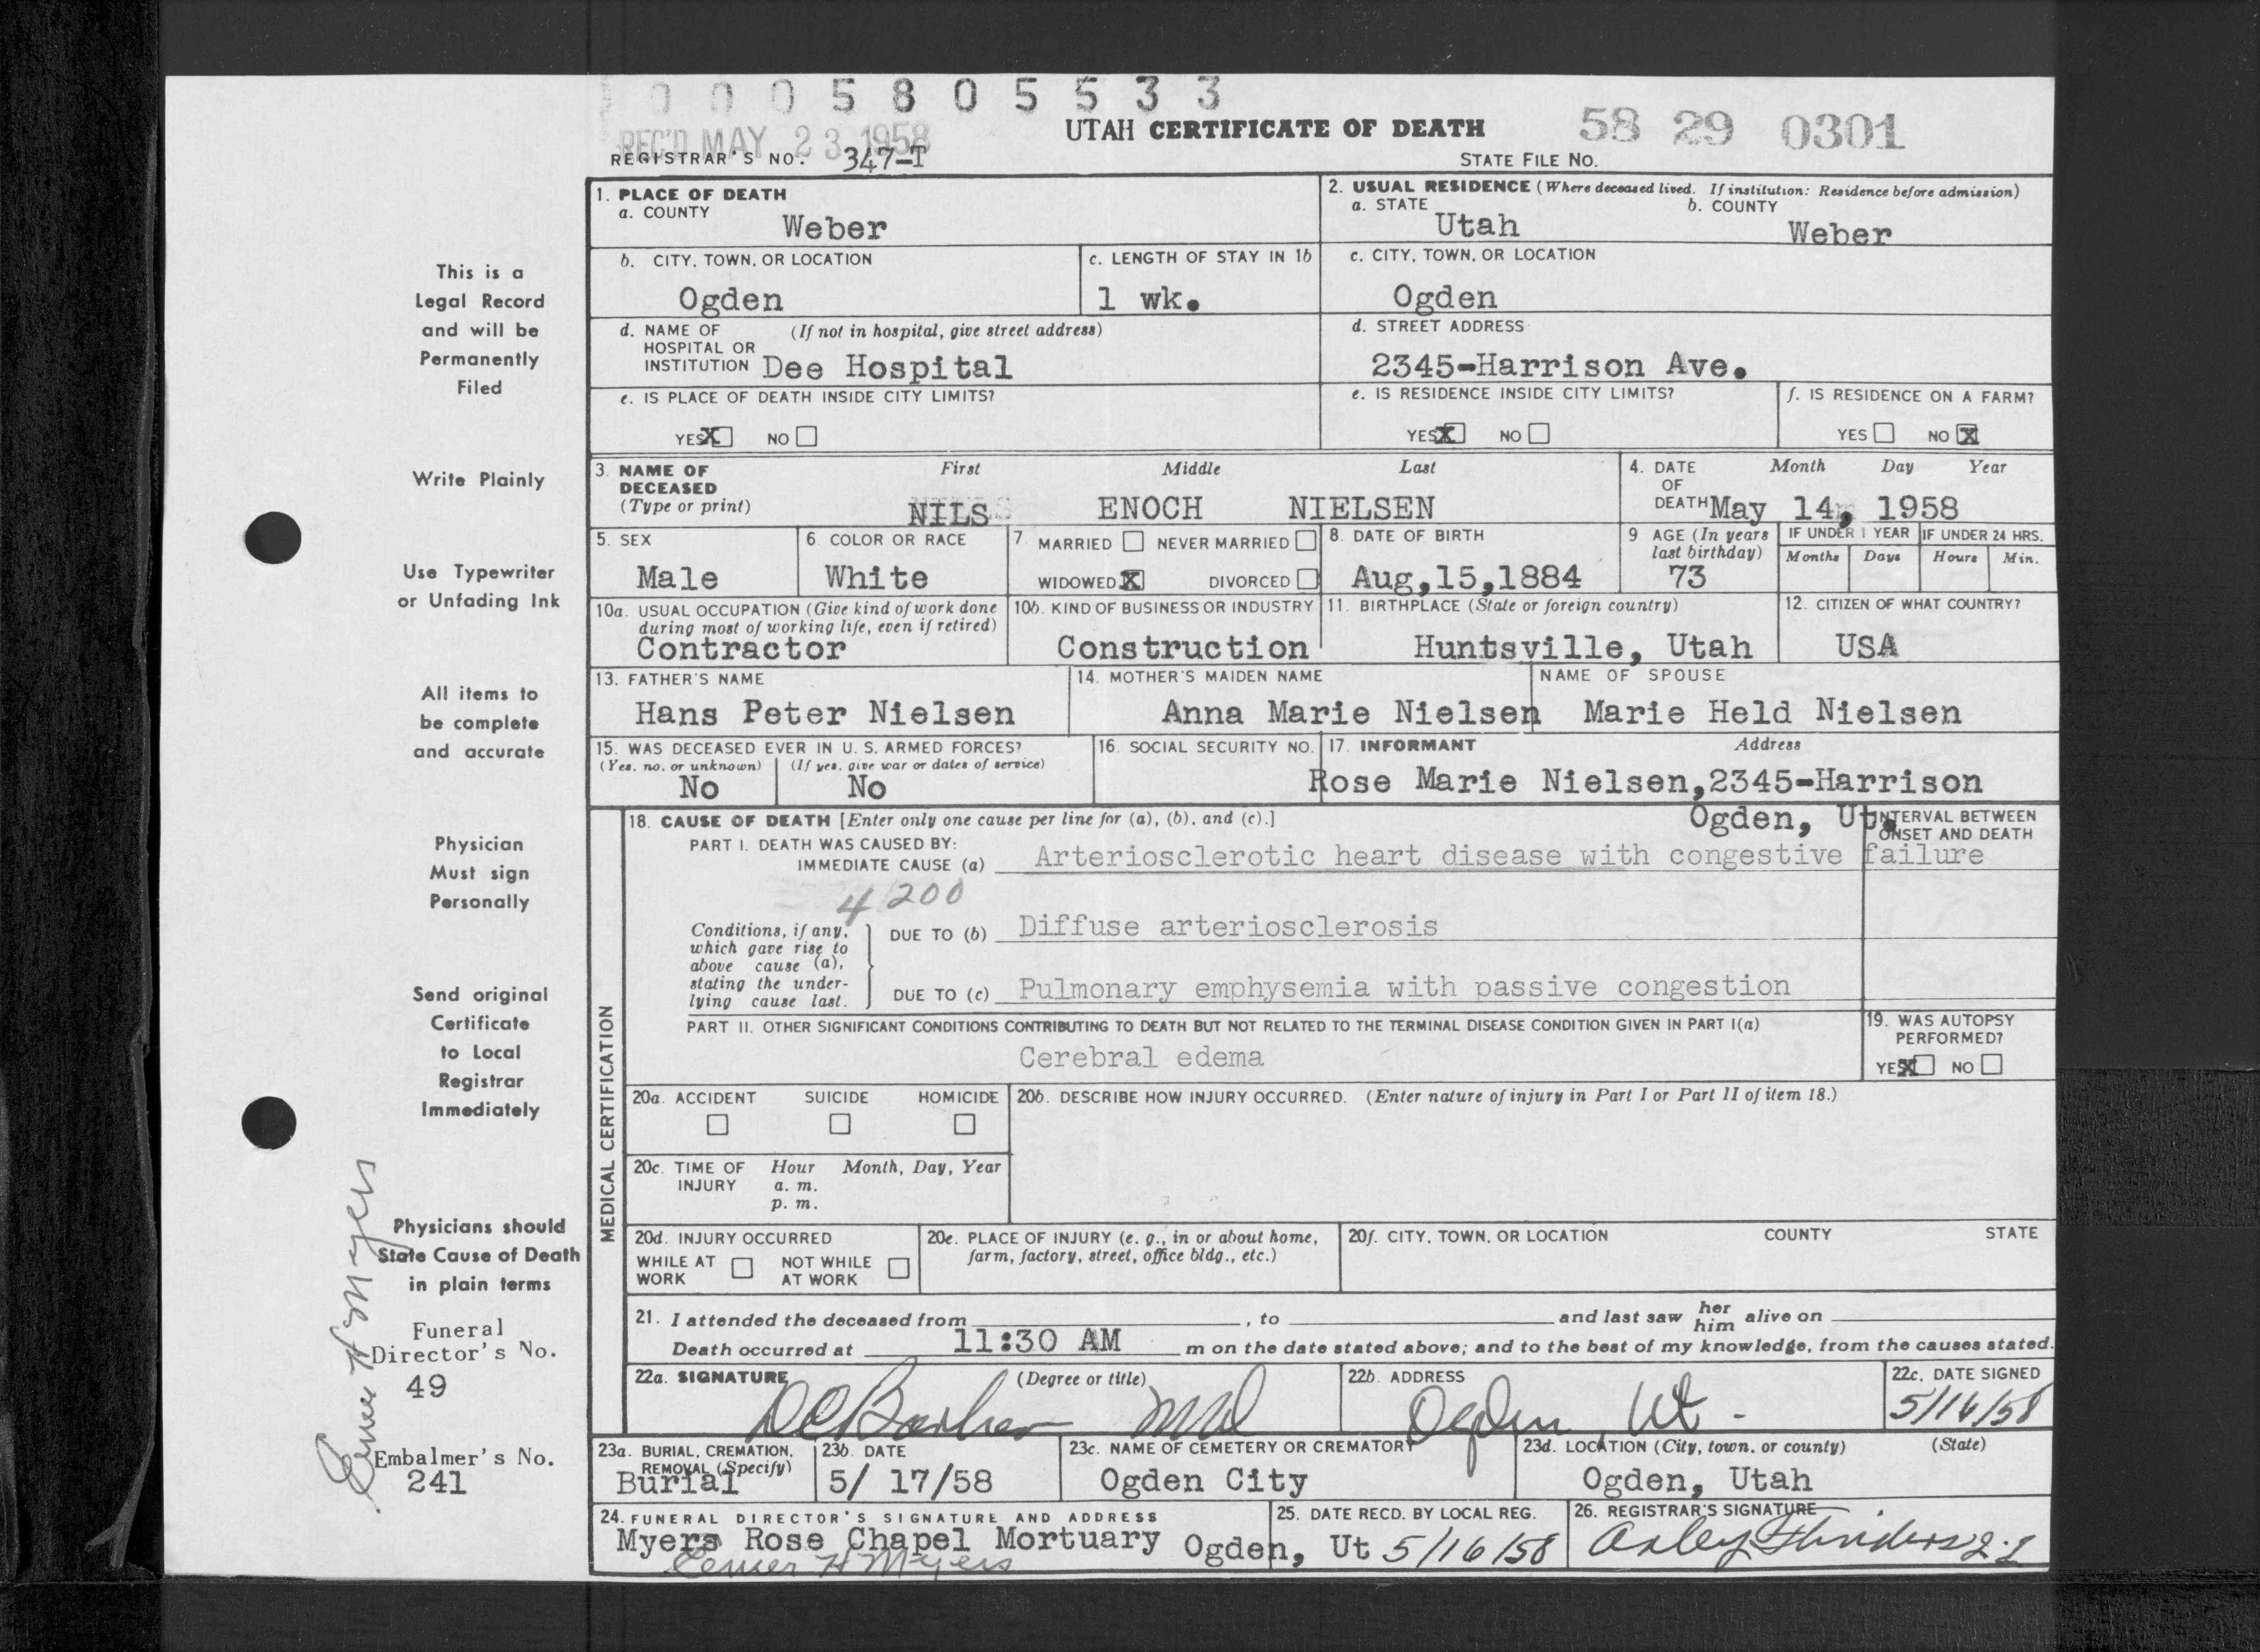 0 0 0 5 8 0 5 5 3 3
REC'D MAY 23 1958
UTAH CERTIFICATE OF DEATH
58 29 0301
REGISTRAR'S NO. 347-T
STATE FILE NO.
1. PLACE OF DEATH
a. COUNTY
Weber
2. USUAL RESIDENCE (Where deceased lived. If institution: Residence before admission)
a. STATE
Utah
b. COUNTY
Weber
b. CITY, TOWN, OR LOCATION
Ogden
c. LENGTH OF STAY IN 1b
1 wk.
c. CITY, TOWN, OR LOCATION
Ogden
d. NAME OF HOSPITAL OR INSTITUTION
(If not in hospital, give street address)
Dee Hospital
d. STREET ADDRESS
2345-Harrison Ave.
e. IS PLACE OF DEATH INSIDE CITY LIMITS?
YES X NO
e. IS RESIDENCE INSIDE CITY LIMITS?
YES X NO
f. IS RESIDENCE ON A FARM?
YES NO X
3. NAME OF DECEASED
(Type or print)
First Middle Last
NILS ENOCH NIELSEN
4. DATE OF DEATH
Month Day Year
May 14, 1958
5. SEX
Male
6. COLOR OR RACE
White
7. MARRIED NEVER MARRIED
WIDOWED X DIVORCED
8. DATE OF BIRTH
Aug,15,1884
9 AGE (In years last birthday)
73
IF UNDER 1 YEAR
Months Days
IF UNDER 24 HRS.
Hours Min.
10a. USUAL OCCUPATION (Give kind of work done during most of working life, even if retired)
Contractor
10b. KIND OF BUSINESS OR INDUSTRY
Construction
11. BIRTHPLACE (State or foreign country)
Huntsville, Utah
12. CITIZEN OF WHAT COUNTRY?
USA
13. FATHER'S NAME
Hans Peter Nielsen
14. MOTHER'S MAIDEN NAME
Anna Marie Nielsen
NAME OF SPOUSE
Marie Held Nielsen
15. WAS DECEASED EVER IN U. S. ARMED FORCES?
(Yes, no, or unknown)
No
(If yes, give war or dates of service)
No
16. SOCIAL SECURITY NO.
17. INFORMANT Address
Rose Marie Nielsen,2345-Harrison
Ogden, Ut.
18. CAUSE OF DEATH [Enter only one cause per line for (a), (b), and (c).]
INTERVAL BETWEEN ONSET AND DEATH
PART I. DEATH WAS CAUSED BY:
IMMEDIATE CAUSE (a) Arteriosclerotic heart disease with congestive failure
4200
Conditions, if any, which gave rise to above cause (a), stating the underlying cause last.
DUE TO (b) Diffuse arteriosclerosis
DUE TO (c) Pulmonary emphysemia with passive congestion
PART II. OTHER SIGNIFICANT CONDITIONS CONTRIBUTING TO DEATH BUT NOT RELATED TO THE TERMINAL DISEASE CONDITION GIVEN IN PART I(a)
Cerebral edema
19. WAS AUTOPSY PERFORMED?
YES X NO
MEDICAL CERTIFICATION
20a. ACCIDENT SUICIDE HOMICIDE
20b. DESCRIBE HOW INJURY OCCURRED. (Enter nature of injury in Part I or Part II of item 18.)
20c. TIME OF INJURY
Hour Month, Day, Year
a. m.
p. m.
20d. INJURY OCCURRED
WHILE AT WORK
NOT WHILE AT WORK
20e. PLACE OF INJURY (e. g., in or about home, farm, factory, street, office bldg., etc.)
20f. CITY, TOWN, OR LOCATION COUNTY STATE
21. I attended the deceased from , to and last saw her him alive on
Death occurred at 11:30 AM m on the date stated above; and to the best of my knowledge, from the causes stated.
22a. SIGNATURE (Degree or title)
DC Barker MD
22b. ADDRESS
Ogden Ut -
22c. DATE SIGNED
5/16/58
23a. BURIAL, CREMATION, REMOVAL (Specify)
Burial
23b. DATE
5/ 17/58
23c. NAME OF CEMETERY OR CREMATORY
Ogden City
23d. LOCATION (City, town, or county) (State)
Ogden, Utah
24. FUNERAL DIRECTOR'S SIGNATURE AND ADDRESS
Myers Rose Chapel Mortuary Ogden, Ut
H Myers
25. DATE RECD. BY LOCAL REG.
5/16/58
26. REGISTRAR'S SIGNATURE
This is a
Legal Record
and will be
Permanently
Filed
Write Plainly
Use Typewriter
or Unfading Ink
All items to
be complete
and accurate
Physician
Must sign
Personally
Send original
Certificate
to Local
Registrar
Immediately
Physicians should
State Cause of Death
in plain terms
Funeral
Director's No.
49
Embalmer's No.
241
H Myers